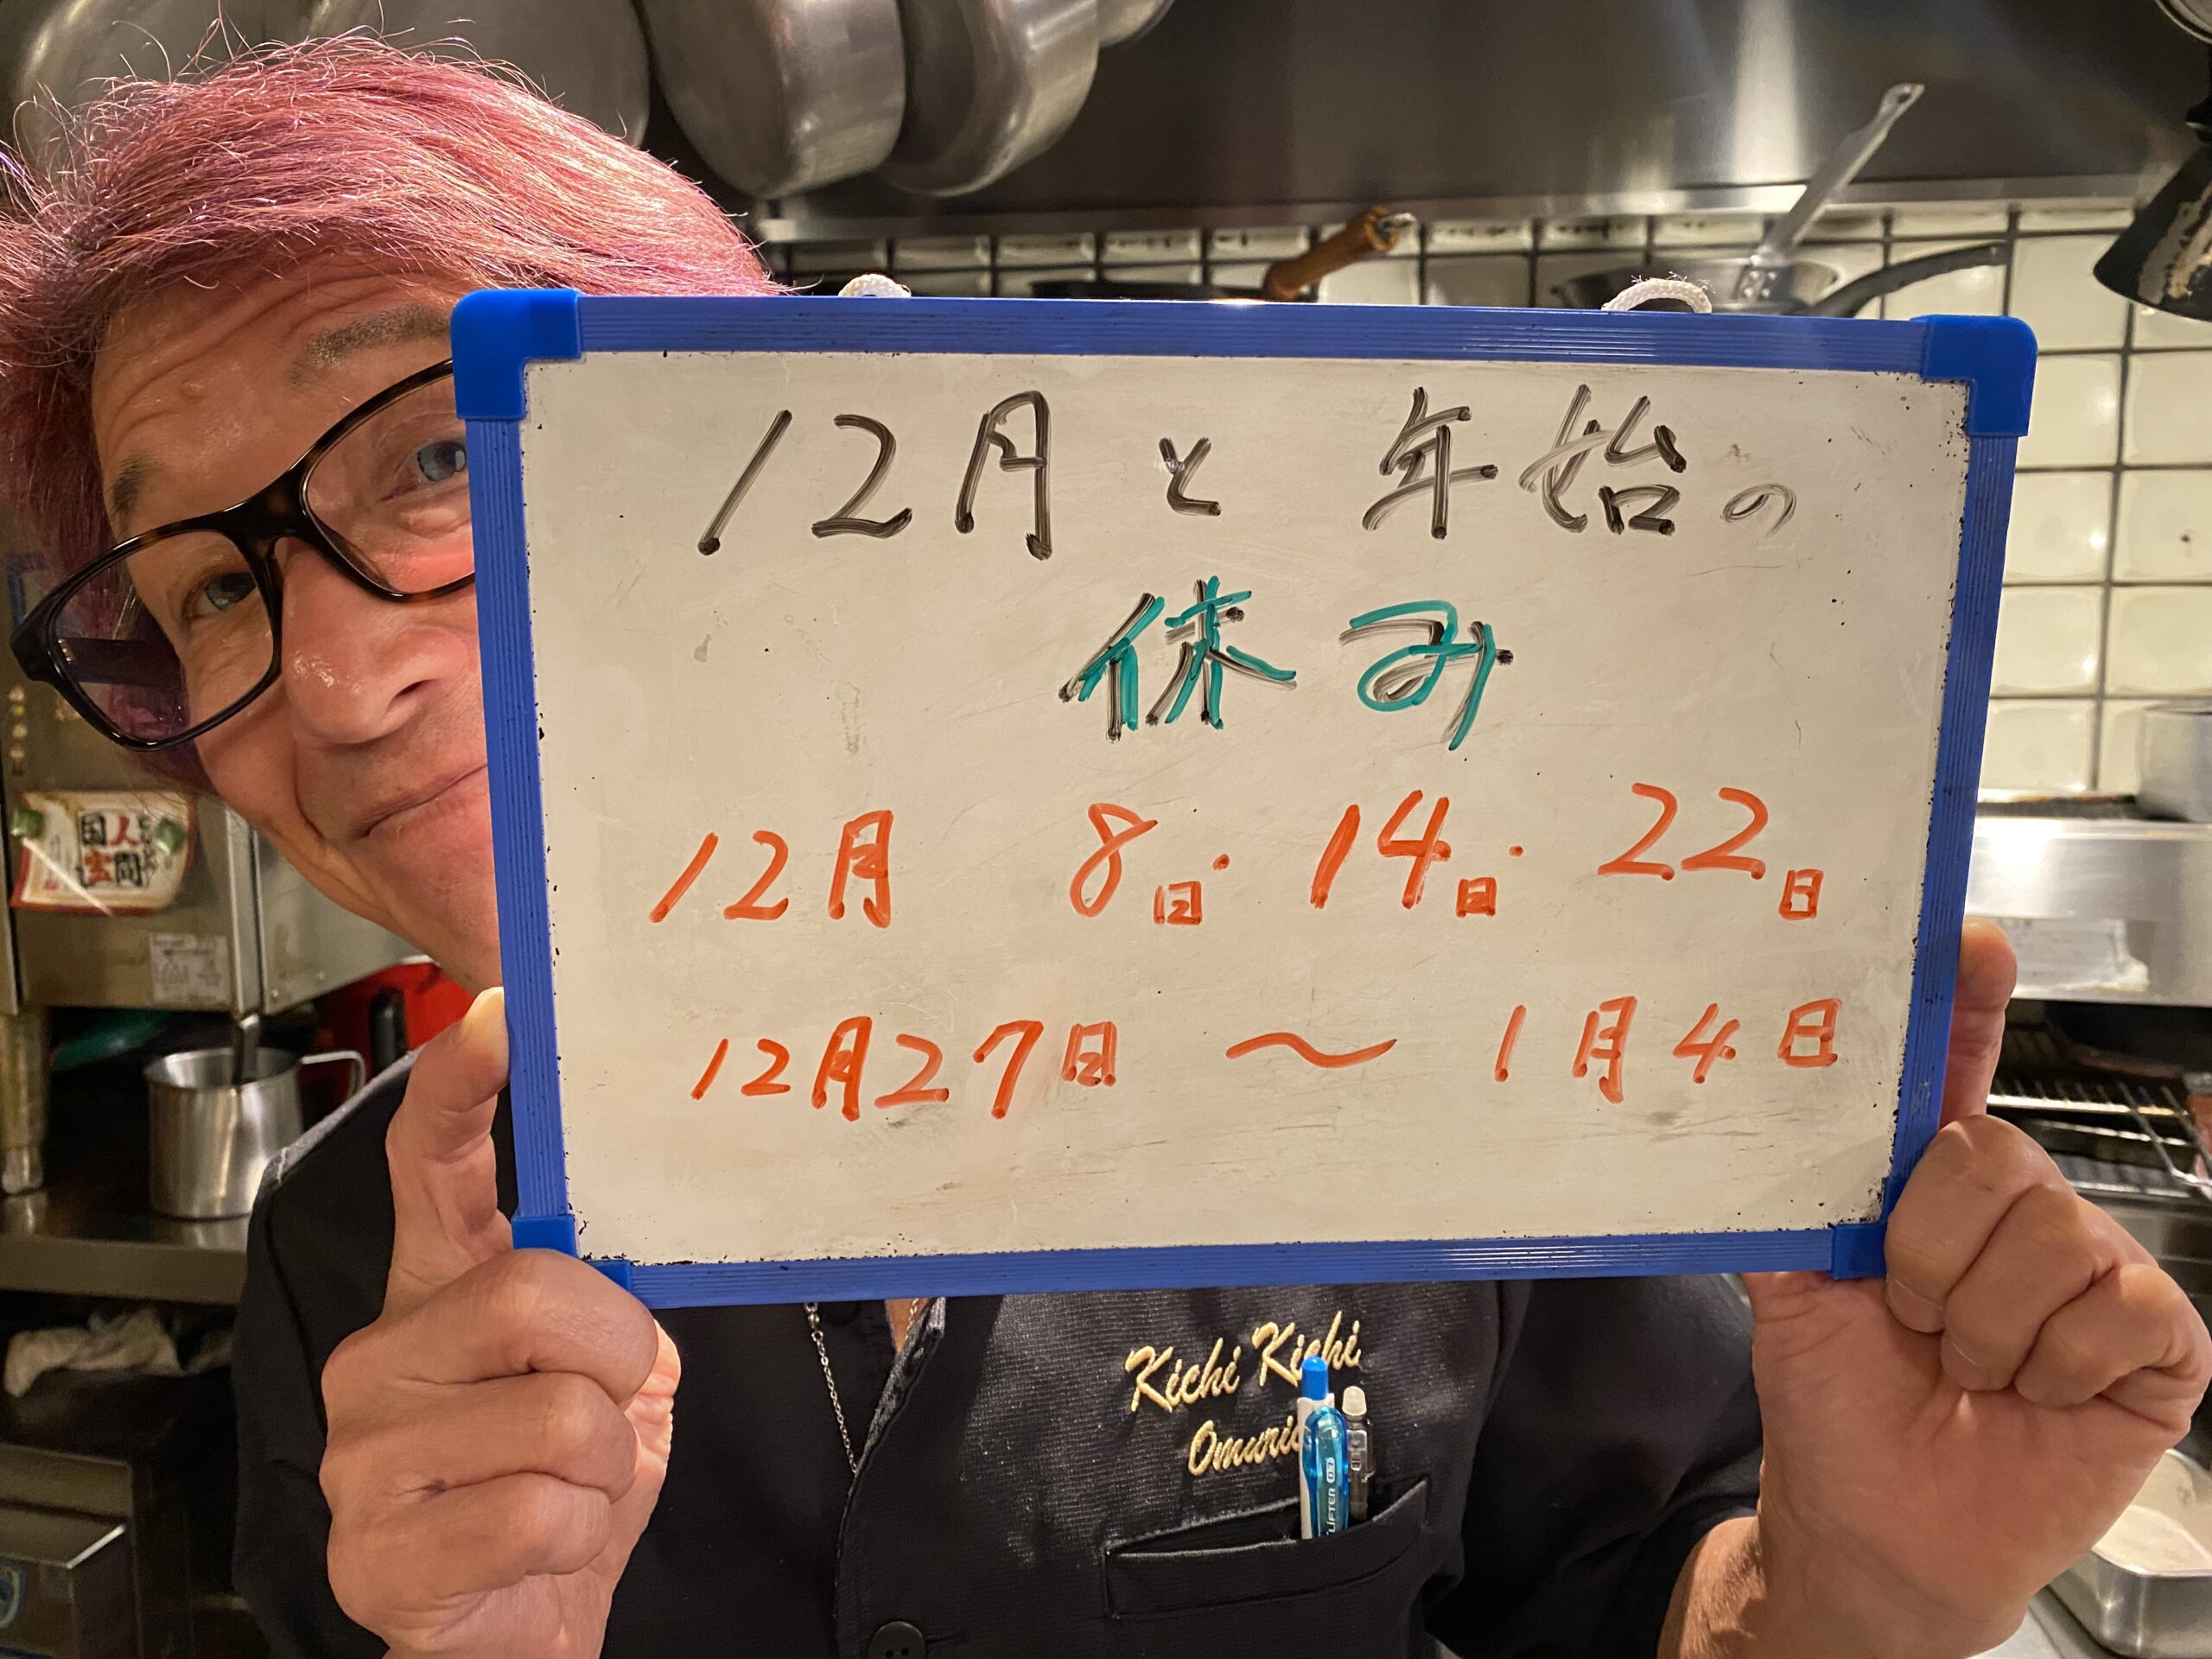 12月と年始の
休み
12月 8日・14日・22日
12月27日 〜 1月4日
Kichi Kichi
人間
国宝
LiFTER 0.3